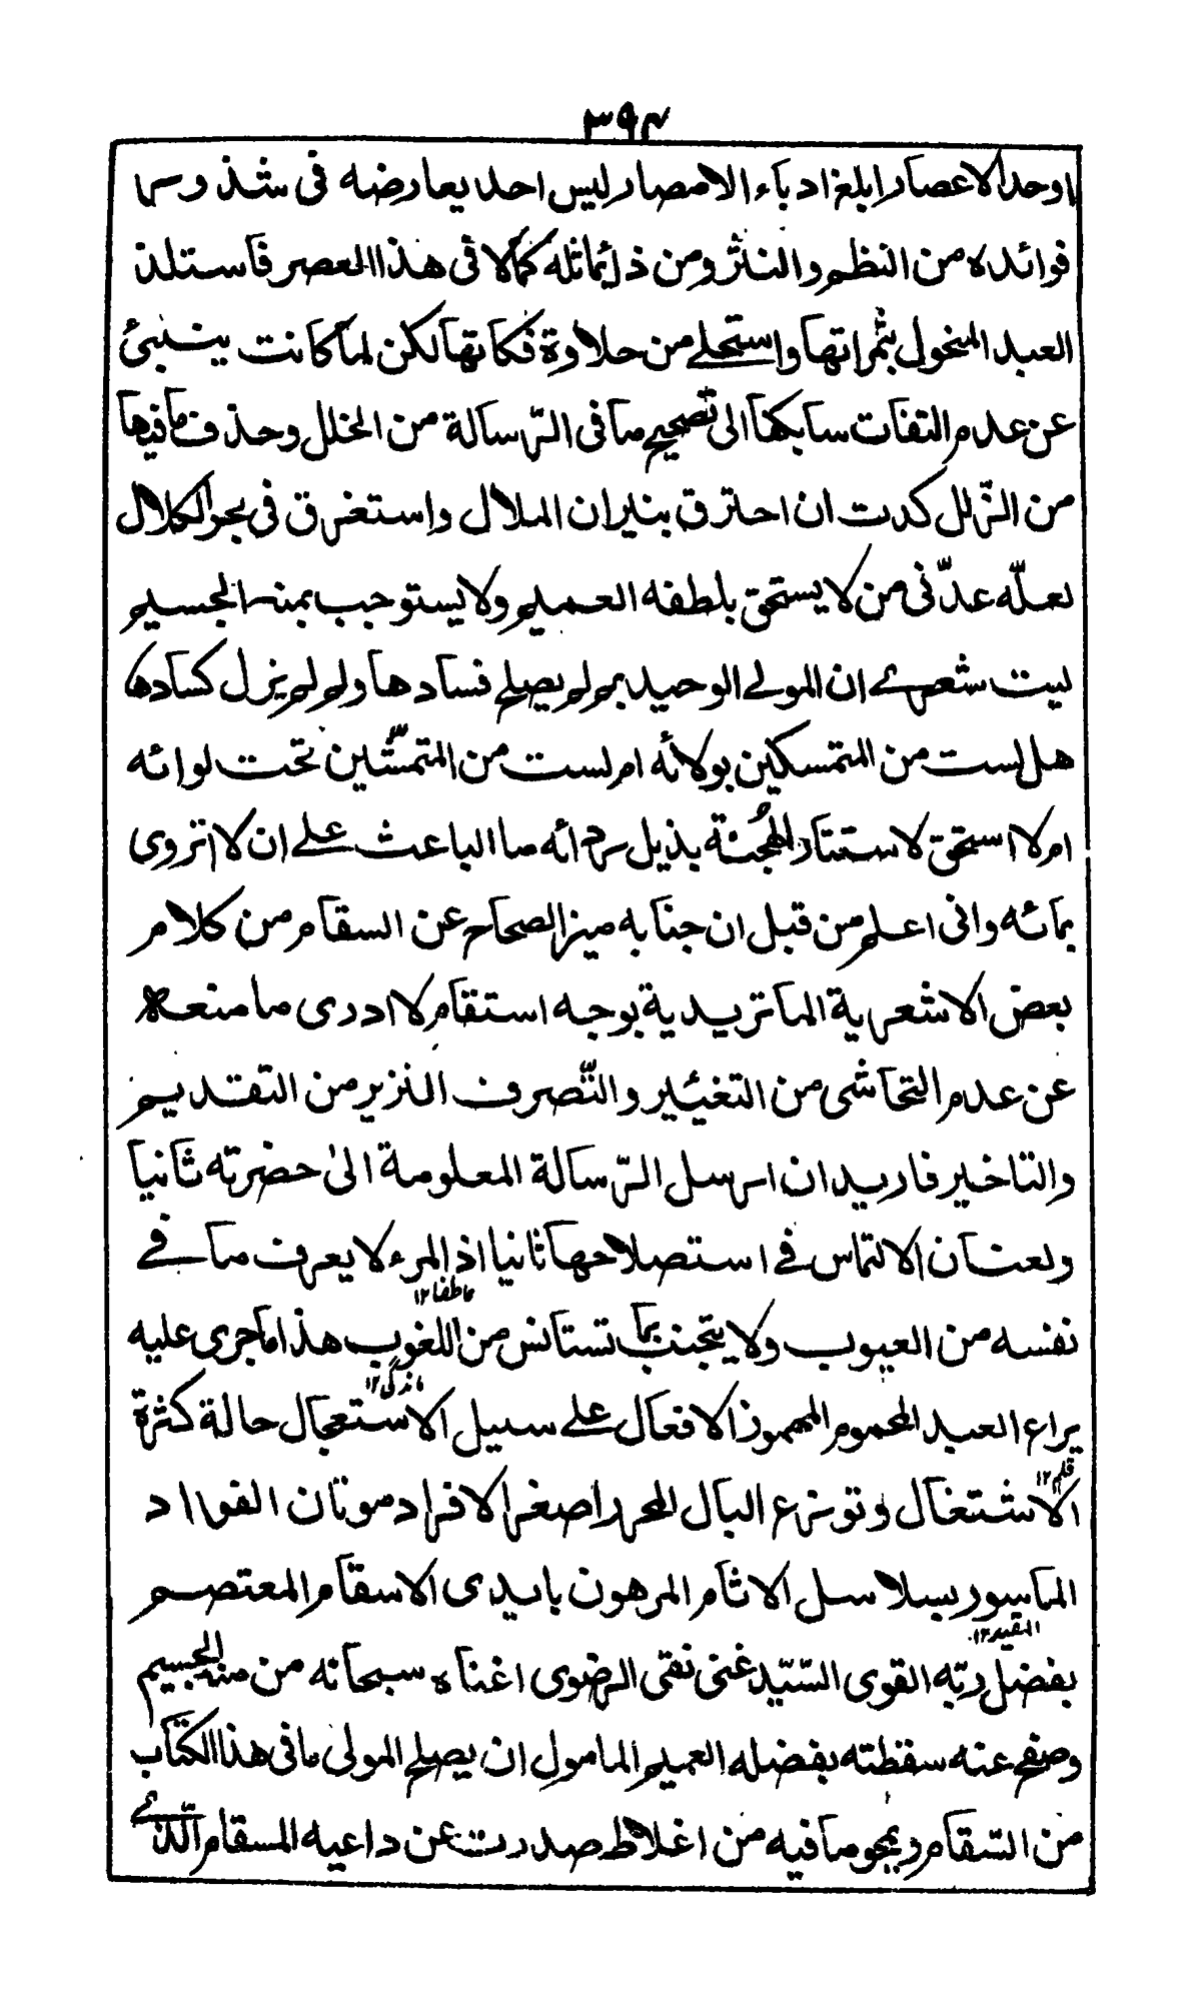 ٣٩٤
اوحد الاعصار ابلغ ادباء الامصار ليس احد يعارضه فى شذوسما
فوائده من النظم والنثر ومن ذا يماثله كمالا فى هذا العصر فاستلذ
العبد المنحول بثمراتها واستحلے من حلاوة فكاتها لكن لما كانت ينبئ
عن عدم التفات سابكها الى تصحيح ما فى الرّسالة من الخلل وحذف ما فيها
من الزّلل كدت ان احترق بنيران الملال واستغرق فى بحر الكلال
لعلّه عدّنى من لا يستحق بلطفه العميم ولا يستوجب بمنه الجسيم
ليت شعرے ان المولے الوحيد بم لم يصلح فسادها ولم لم يزل كسادها
هل لست من المتمسكين بولائه ام لست من المتمشّين تحت لوائه
ام لا استحق لاستتار الهُجنة بذيل ردائه ما الباعث علے ان لا اتروى
بمائه وانى اعلم من قبل ان جنابه ميز الصحاح عن السقام من كلام
بعض الاشعرية الماتريدية بوجه استقام لا ادرى ما منعه
عن عدم التحاشى من التغيير والتّصرف النزير من التقديم
والتاخير فاريد ان ارسل الرّسالة المعلومة الىٰ حضرته ثانيا
ولعنان الالتماس فے استصلاحها ثانيا اذ المرء لا يعرف ما فے
عاطفا ١٢
نفسه من العيوب ولا يتجنب بما تستانس من اللغوب هذا ما جرى عليه
ماندگى ١٢
يراع العبد المحموم المهموز الافعال علے سبيل الاستعجال حالة كثرة
قلم ١٢
الاشتغال وتوزع البال المحرر اصغر الافراد موتان الفواد
الماسور بسلاسل الاثام المرهون بايدى الاسقام المعتصم
المقيد ١٢
بفضل ربّه القوى السّيّد غنى نقى الرضوى اغناه سبحانه من منه الجسيم
وصفح عنه سقطته بفضله العميم المامول ان يصلح المولى ما فى هذا الكتاب
من السّقام ويمحو ما فيه من اغلاط صدرت عن داعيه المسقام الّذے